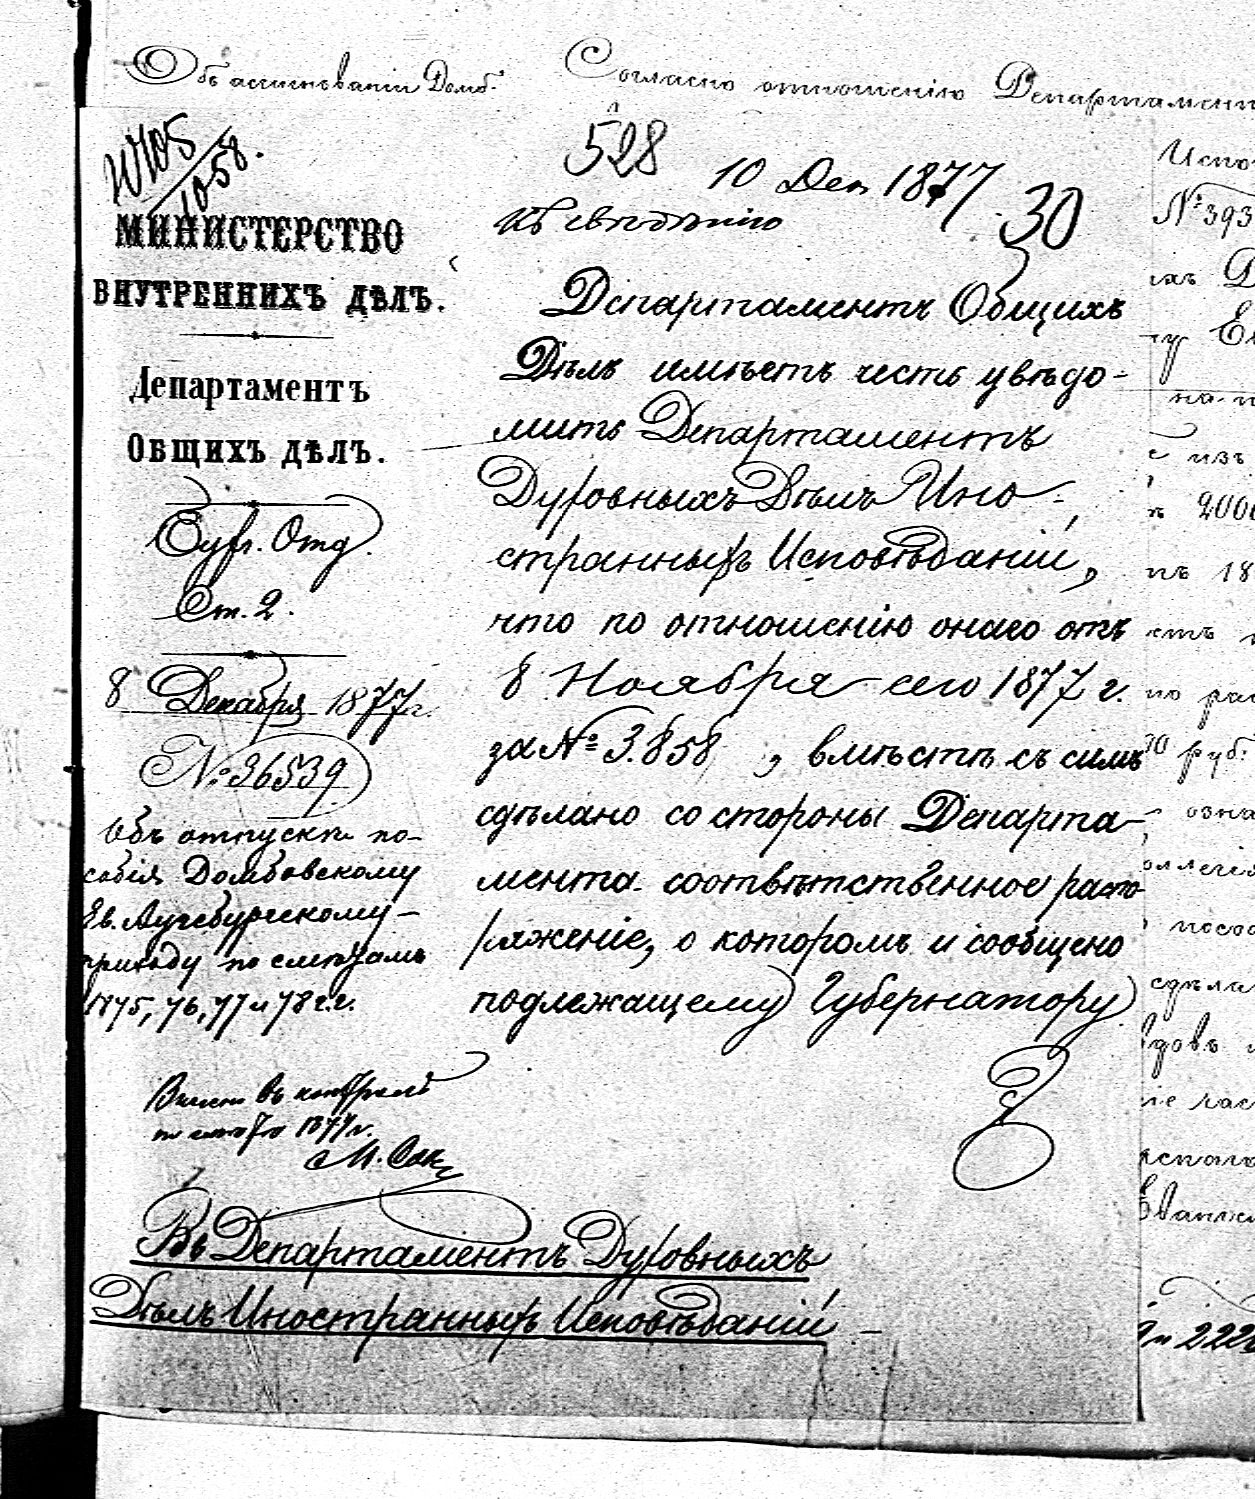 Объ ассигнованіи Домб.
Согласно отношенію Департамент
528
10 Дек 1877
30
къ свѣдѣнію
МИНИСТЕРСТВО
ВНУТРЕННИХЪ ДѢЛЪ.
Департаментъ
ОБЩИХЪ ДѢЛЪ.
Отд.
Ст. 2.
8 Декабря 1877 г.
№ 36539
Объ отпускѣ по-
собія Домбовскому
Ев. Аугсбургскому
приходу по смѣтамъ
1875, 76, 77 и 78 г.г.
Департаментъ Общихъ
Дѣлъ имѣетъ честь увѣдо-
мить Департаментъ
Духовныхъ Дѣлъ Ино-
странныхъ Исповѣданій,
что по отношенію онаго отъ
8 Ноября сего 1877 г.
за № 3.858, вмѣстѣ съ симъ
сдѣлано со стороны Департа-
мента соотвѣтственное распо-
ряженіе, о которомъ и сообщено
подлежащему Губернатору.
въ
1877 г.
М.
Въ Департаментъ Духовныхъ
Дѣлъ Иностранныхъ Исповѣданій
№ 393
изъ
2000
18
руб.